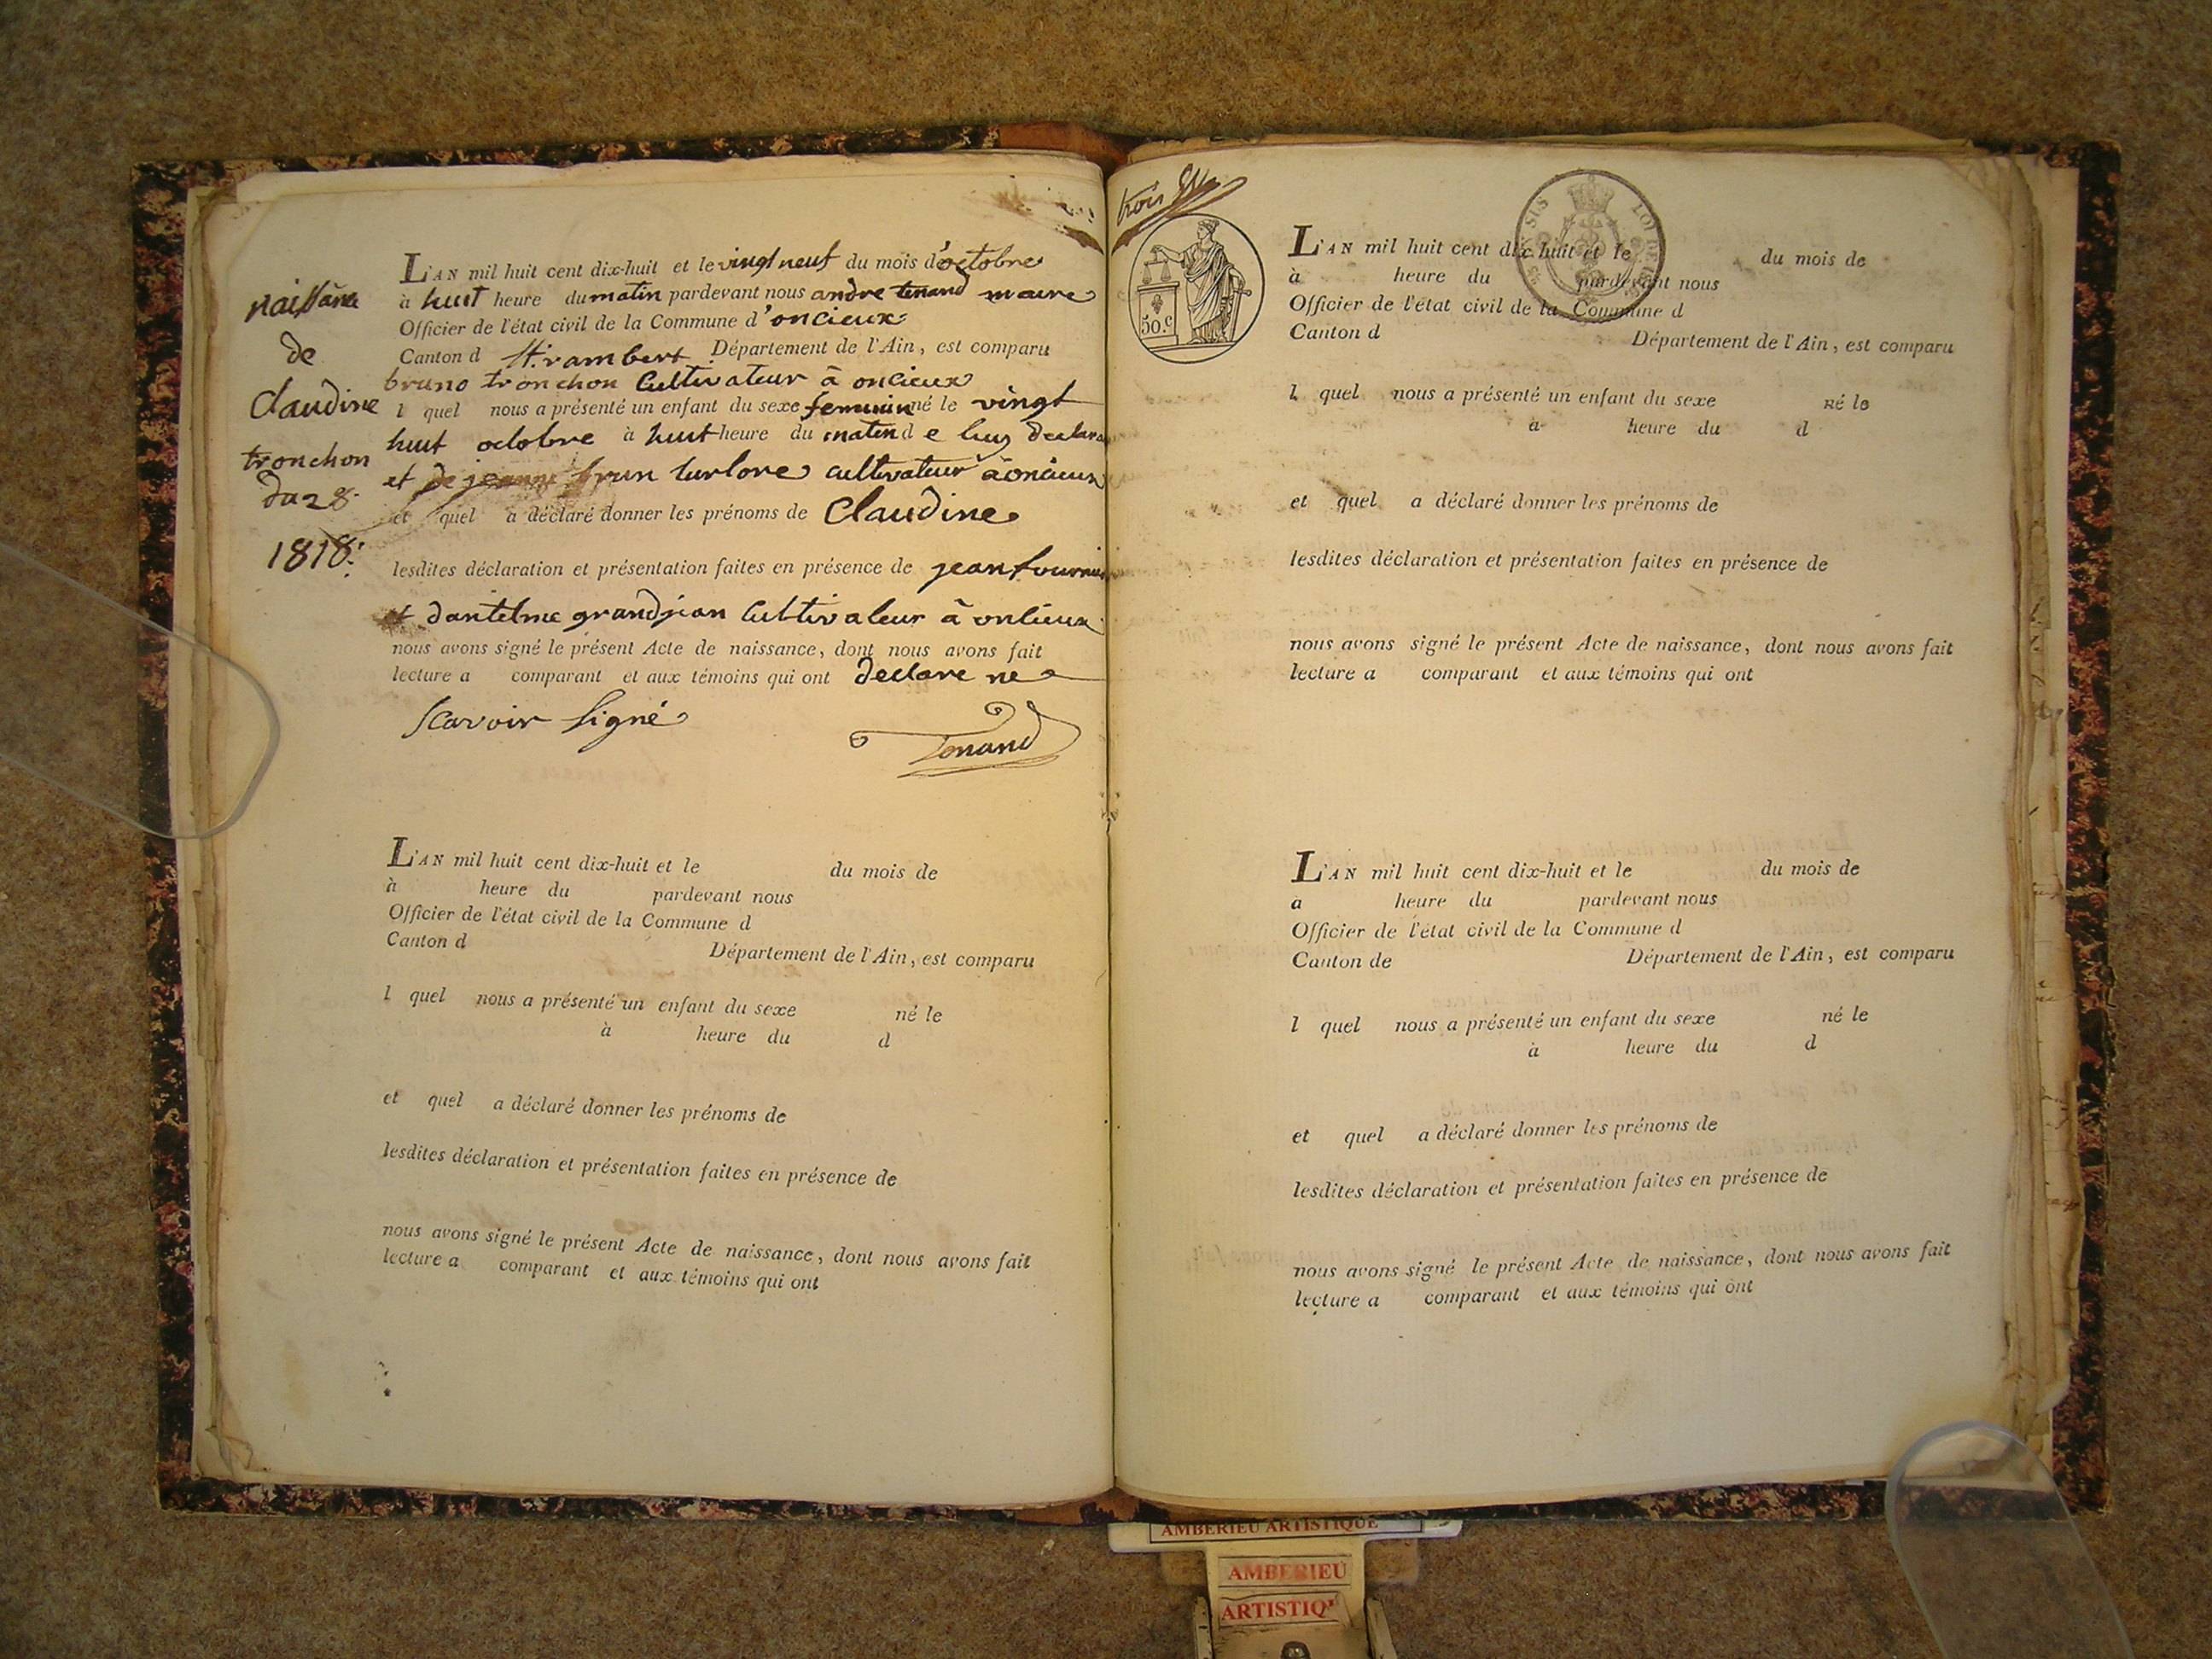 naissance
de
Claudine
tronchon
du 28.
1818.
L'AN mil huit cent dix-huit et le vingt neuf du mois d'octobre
à huit heure du matin pardevant nous andre tenand maire
Officier de l'état civil de la Commune d'oncieux
Canton d St. rambert Département de l'Ain, est comparu
bruno tronchon Cultivateur à oncieux
l quel nous a présenté un enfant du sexe feminin né le vingt
huit octobre à huit heure du matin d e luy declara
et de jeanne brun cultivateur à oncieux
et quel a déclaré donner les prénoms de Claudine
lesdites déclaration et présentation faites en présence de jean
et dantelme grandjean Cultivateur à oncieux
nous avons signé le présent Acte de naissance, dont nous avons fait
lecture a comparant et aux témoins qui ont declare ne
scavoir signé
Tenand
L'AN mil huit cent dix-huit et le du mois de
à heure du pardevant nous
Officier de l'état civil de la Commune d
Canton d Département de l'Ain, est comparu
l quel nous a présenté un enfant du sexe né le
à heure du d
et quel a déclaré donner les prénoms de
lesdites déclaration et présentation faites en présence de
nous avons signé le présent Acte de naissance, dont nous avons fait
lecture a comparant et aux témoins qui ont
trois
50.c
L'AN mil huit cent dix-huit et le du mois de
à heure du pardevant nous
Officier de l'état civil de la Commune d
Canton d Département de l'Ain, est comparu
l quel nous a présenté un enfant du sexe né le
à heure du d
et quel a déclaré donner les prénoms de
lesdites déclaration et présentation faites en présence de
nous avons signé le présent Acte de naissance, dont nous avons fait
lecture a comparant et aux témoins qui ont
L'AN mil huit cent dix-huit et le du mois de
a heure du pardevant nous
Officier de l'état civil de la Commune d
Canton de Département de l'Ain, est comparu
l quel nous a présenté un enfant du sexe né le
à heure du d
et quel a déclaré donner les prénoms de
lesdites déclaration et présentation faites en présence de
nous avons signé le présent Acte de naissance, dont nous avons fait
lecture a comparant et aux témoins qui ont
AMBERIEU ARTISTIQUE
AMBERIEU
ARTISTIQ'